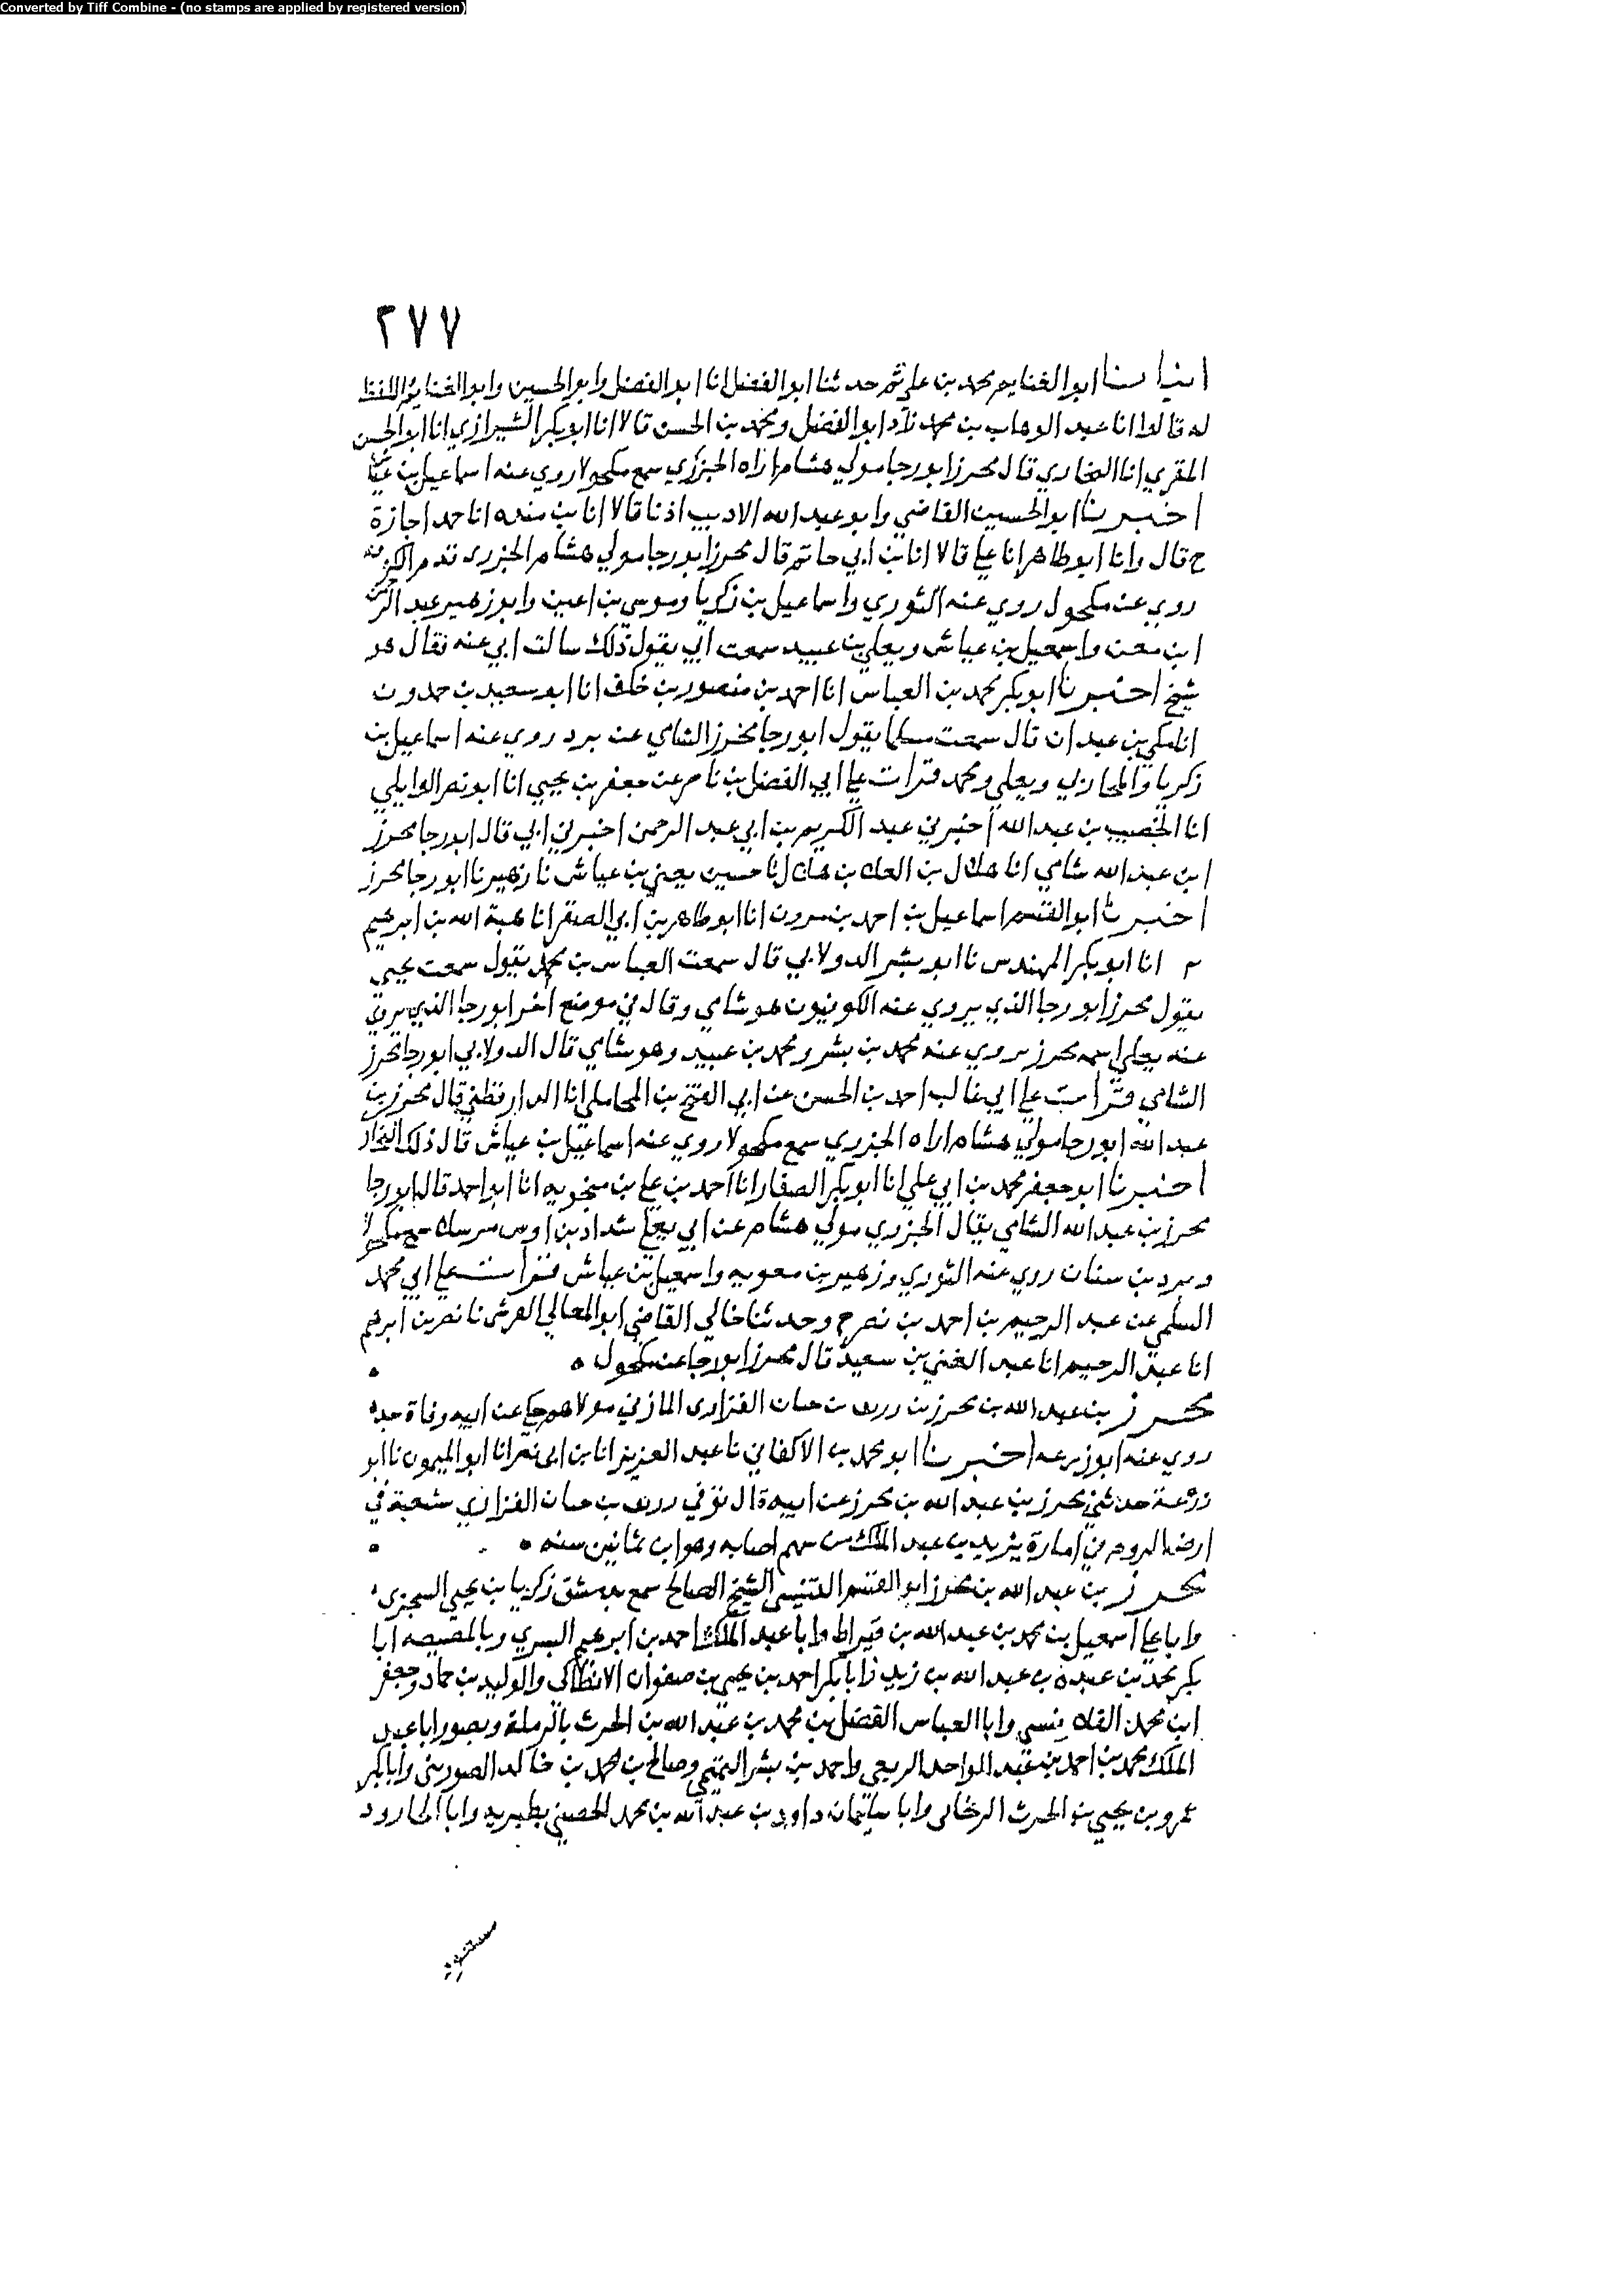 Converted by Tiff Combine - (no stamps are applied by registered version)
٢٧٧
انبانا ابو الغنايم محمد بن علي ثم حدثنا ابو الفضل انا ابو الفضل وابو الحسين وابو الغنايم واللفظ
له قالوا انا عبد الوهاب بن محمد زاد ابو الفضل ومحمد بن الحسن قالا انا ابو بكر الشيرازي انا ابو الحسن
المقري انا البخاري قال محرز ابو رجا مولي هشام اراه الجزري سمع مكحولا روي عنه اسماعيل بن
اخبرنا ابو الحسين القاضي وابو عبد الله الاديب اذنا قالا انا بن منده انا حمد اجازة
ح قال وانا ابو طاهر انا علي قالا انا بن ابي حاتم قال محرز ابو رجا مولي هشام الجزري قدم الكوفه
روي عن مكحول روي عنه الثوري واسماعيل بن زكريا وموسي بن اعين وابو زهير عبد الرحمن
ابن مغرا واسمعيل بن عياش ويعلي بن عبيد سمعت ابي يقول ذلك سالت ابي عنه فقال هو
شيخ اخبرنا ابو بكر محمد بن العباس انا احمد بن منصور بن خلف انا ابو سعيد بن حمدون
انا مكي بن عبدان قال سمعت مسلما يقول ابو رجا محرز الشامي عن برد روي عنه اسماعيل بن
زكريا والمحاربي ويعلي ومحمد قرات علي ابي الفضل بن ناصر عن جعفر بن يحيي انا ابو نصر الوايلي
انا الخصيب بن عبد الله اخبرني عبد الكريم بن ابي عبد الرحمن اخبرني ابي قال ابو رجا محرز
ابن عبد الله شامي انا هلال بن العلا بن هلال نا حسين يعني بن عياش نا زهير نا ابو رجا محرز
اخبرنا ابو القسم اسماعيل بن احمد بن انا ابو طاهر بن ابي الصقر انا هبة الله بن ابرهيم
انا ابو بكر المهندس نا ابو بشر الدولابي قال سمعت العباس بن محمد يقول سمعت يحيي
يقول محرز ابو رجا الذي يروي عنه الكوفيون هو شامي وقال في موضع اخر ابو رجا الذي يروي
عنه يعلي اسمه محرز يروي عنه محمد بن بشر ومحمد بن عبيد وهو شامي قال الدولابي ابو رجا محرز
الشامي قرات علي ابي غالب احمد بن الحسن عن ابي الفتح بن المحاملي انا الدارقطني قال محرز بن
عبد الله ابو رجا مولي هشام اراه الجزري سمع مكحولا روي عنه اسماعيل بن عياش قال ذلك البخاري
اخبرنا ابو جعفر محمد بن ابي علي انا ابو بكر الصفار انا احمد بن علي بن منجويه انا ابو احمد قال ابو رجا
محرز بن عبد الله الشامي يقال الجزري مولي هشام عن ابي يعلي شداد بن اوس مرسلا سمع مكحولا
وبرد بن سنان روي عنه الثوري وزهير بن معويه واسمعيل بن عياش قرات علي ابي محمد
السلمي عن عبد الرحيم بن احمد بن نصر ح وحدثنا خالي القاضي ابو المعالي القرشي نا نصر بن ابرهيم
انا عبد الرحيم انا عبد الغني بن سعيد قال محرز ابو رجا عن مكحول ٥
محرز بن عبد الله بن محرز بن رريق بن حيان الفزاري المازني مولاهم حكي عن ابيه وفاة جده
روي عنه ابو زرعه اخبرنا ابو محمد بن الاكفاني نا عبد العزيز انا بن ابي نصر انا ابو الميمون نا ابو
زرعة حدثني محرز بن عبد الله بن محرز عن ابيه قال توفي رريق بن حيان الفزاري في
ارض الروم في امارة يزيد بن عبد الملك من سهم اصابه وهو ابن ثمانين سنه ٥
محرز بن عبد الله بن محرز ابو القسم التنيسي الشيخ الصالح سمع بدمشق زكريا بن يحيي السجزي
وابا علي اسمعيل بن محمد بن عبد الله بن قيراط وابا عبد الملك احمد بن ابرهيم البسري وبالمصيصه ابا
بكر محمد بن عبدة بن عبد الله بن زيد وابا بكر احمد بن يحيي بن صفوان الانطاكي والوليد بن حماد وجعفر
ابن محمد القلانسي وابا العباس الفضل بن محمد بن عبد الله بن الحرث بالرملة وبصور ابا عبد
الملك محمد بن احمد بن عبد الواحد الربعي واحمد بن بشر التميمي وصالح بن محمد بن خالد الصوريني وابا بكر
عمرو بن يحيي بن الحرث وابا سليمان داود بن عبد الله بن محمد الحصيني بطبريه وابا الجارود